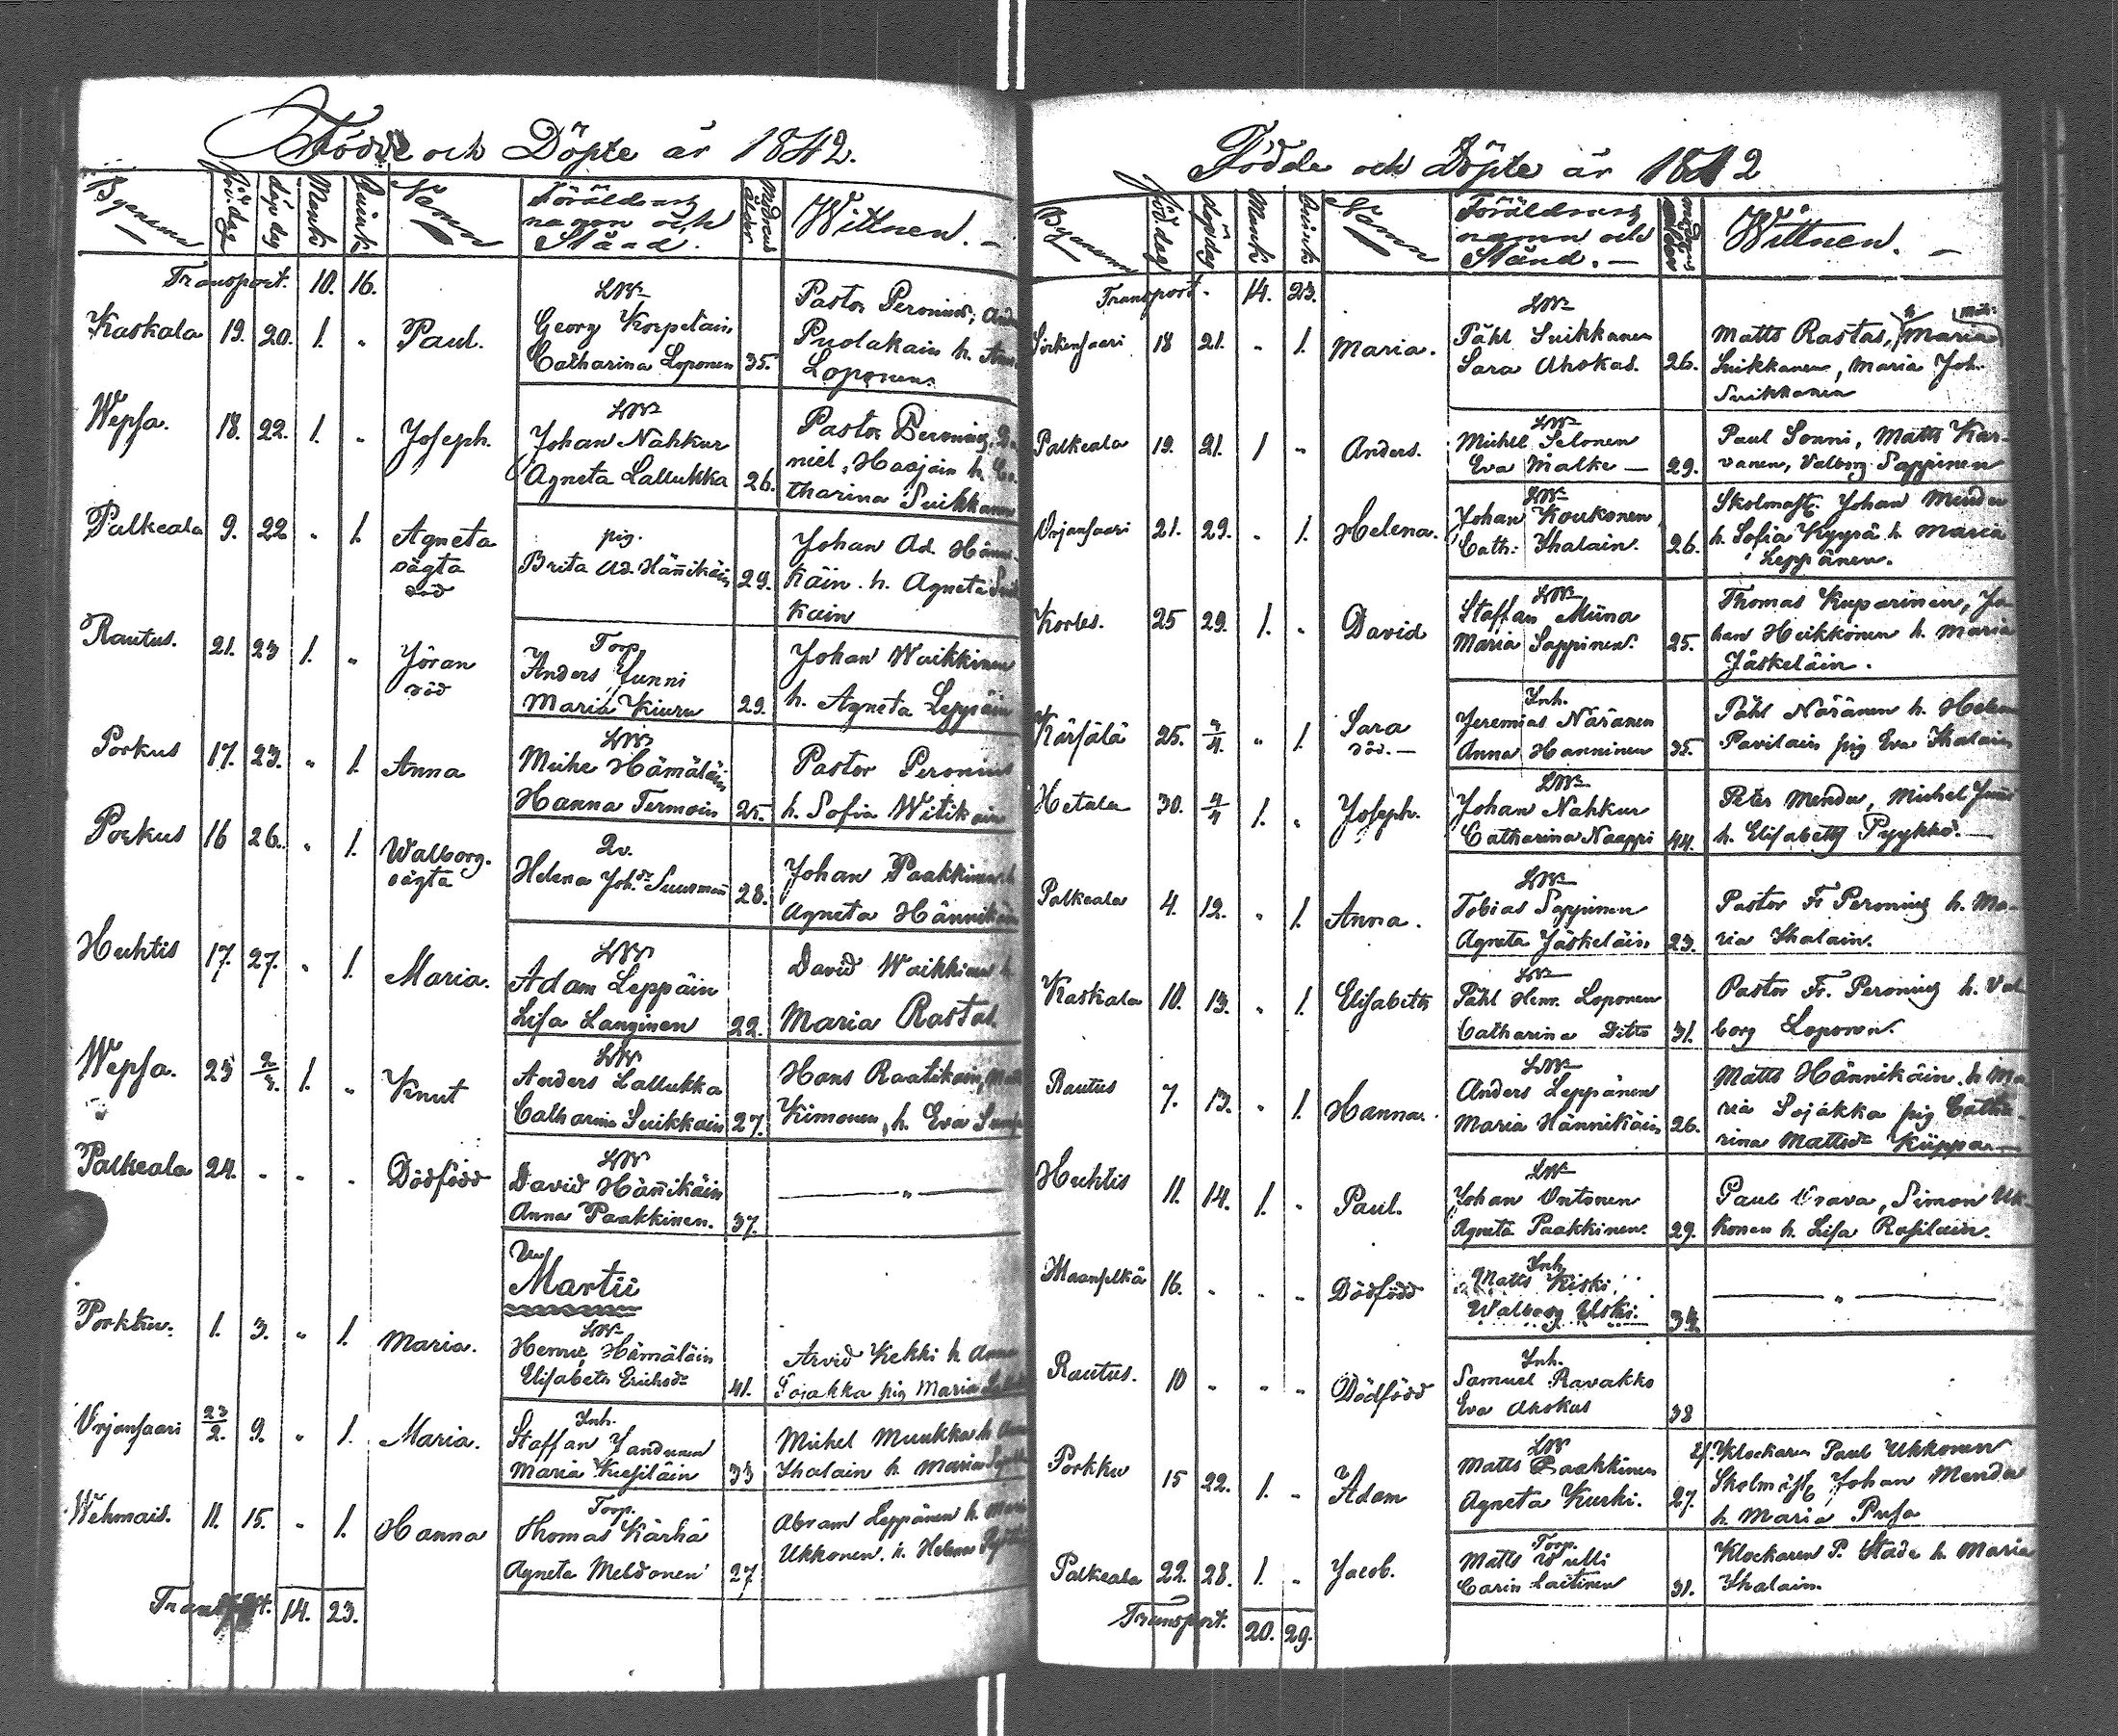 Födde och Döpte år 1842.
Byenamn föd. dag döp dag Mank Quink Namn Föräldrars namn och Stånd. Modrens ålder Wittnen.
Transport. 10. 16.
Kaskala 19. 20. 1. " Paul.
Georg Korpelain
Catharina Loponen 35.
Pastor Peronius,
Puolakain h.
Loponen.
Wepsa. 18. 22. 1. " Joseph.
Johan Nahkur
Agneta Lallukka 26.
Pastor Peronius,
niel, Haajain h. Ca-
tharina Suikkanen
Palkeala 9. 22. " 1. Agneta
oägta
död
pig.
Brita Ad. Hänikäin 29.
Johan Ad. Hänni-
käin. h. Agneta
kain
Rautus. 21. 23 1. " Jöran
död
Torp.
Anders Junni
Maria Kiuru 29.
Johan Waikkinen
h. Agneta Leppäin
Porkus 17. 23. " 1. Anna
Miche Hämäläin
Hanna Termoin 25.
Pastor Peronius
h. Sofia Witikain
Porkus 16 26. " 1. Walborg.
oägta
Qv.
Helena Joh.dr 28.
Johan Paakkinen h
Agneta Hännikäin
Huhtis 17. 27. " 1. Maria.
Adam Leppäin
Lisa Langinen 22.
David Waikkinen h.
Maria Rastas.
Wepsa. 23 2/3. 1. " Knut
Anders Lallukka
Catharina Suikkain 27.
Hans Raatikain,
Kimonen, h. Eva
Palkeala 24. " " " Dödfödd
David Hänikäin
Anna Paakkinen. 37.
"
Uti
Martii
Porkku. 1. 3. " 1. Maria.
Henric Hämäläin
Elisabeth Ericsdr 41.
Arvid Kekki h. Anna
Pojakka pig Maria
Orjansaari 23/2. 9. " 1. Maria.
Inh.
Staffan Jandunen
Maria Kiesiläin 33
Michel Muukka h. Anna
Ihalain h. Maria
Wehmais. 11. 15. " 1. Hanna
Torp.
Thomas Kärhä
Agneta Meldonen 27.
Abram Leppänen h. Maria
Ukkonen. h. Helena
Transport. 14. 23.
Födde och Döpte år 1842
Byenamn Föd dag döpdag Mank Quink Namn Föräldrars namn och Stånd. Modrens ålder Wittnen.
Transport. 14. 23.
Sirkensaari 18 21. " 1. Maria.
Påhl Suikkanen
Sara Ahokas. 26.
Matts Rastas, Maria
Suikkanen, Maria Joh.
Suikkanen
Palkeala 19. 21. 1 " Anders.
Michel Selonen
Eva Malke 29.
Paul Sonni, Matts Kar-
vanen, Valborg Sappinen
Orjansaari 21. 29. " 1. Helena.
Johan Koukonen
Cath: Ihalain. 26.
Skolmäst. Johan Mendu
h. Sofia Kyyrä h. Maria
Leppänen.
Korles. 25 29. 1. " David
Staffan Miina
Maria Sappinen. 25.
Thomas Kuparinen, Jo
han Heikkonen h. Maria
Jäskeläin.
Kärsälä 25. 3/4. " 1. Sara
död.
Inh.
Jeremias Näränen
Anna Hanninen 35.
Påhl Näränen h. Helena
Pavilain pig Eva Ihalain
Hatala 30. 4/4 1. " Joseph.
Johan Nahkur
Catharina Naappi 44.
Peter Mendu, Michel
h. Elisabeth Pyykkö.
Palkeala 4. 12. " 1. Anna.
Tobias Sappinen
Agneta Jäskeläin. 23.
Pastor Fr Peronius h. Ma-
ria Ihalain.
Kaskala 10. 13. " 1. Elisabeth
Påhl Henr. Loponen
Catharina Ditto 31.
Pastor Fr. Peronius h. Val
borg Loponen.
Rautus 7. 13. " 1. Hanna.
Anders Leppänen
Maria Hännikäin 26.
Matts Hännikäin. h. Ma-
ria Pojakka pig Catha-
rina Mattsdr
Huhtis 11. 14. 1. " Paul.
Johan Ontonen
Agneta Paakkinen. 29.
Paul Orava, Simon Uk-
konen h. Lisa Rasilain.
Maanselkä 16. " " " Dödfödd
Inh.
Matts Kiski
Walborg Uski.
"
Rautus. 10 " " " Dödfödd
Inh.
Samuel Ravakko
Eva Ahokas 38
Porkku 15 22. 1. " Adam
Matts Paakkinen
Agneta Kurki. 27.
Klockaren Paul Ukkonen
Skolmäst. Johan Mendu
h. Maria Pusa
Palkeala 22. 28. 1. " Jacob.
Torp.
Matts Wulli
Carin Laitinen 31.
Klockaren P. Stade h. Maria
Ihalain.
Transport. 20. 29.